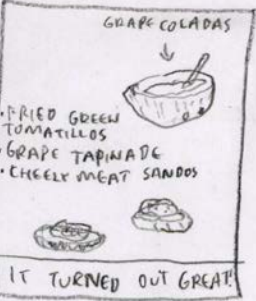 GRAPE COLADAS
• FRIED GREEN
TOMATILLOS
• GRAPE TAPINADE
• CHEEKY MEAT SANDOS
IT TURNED OUT GREAT!